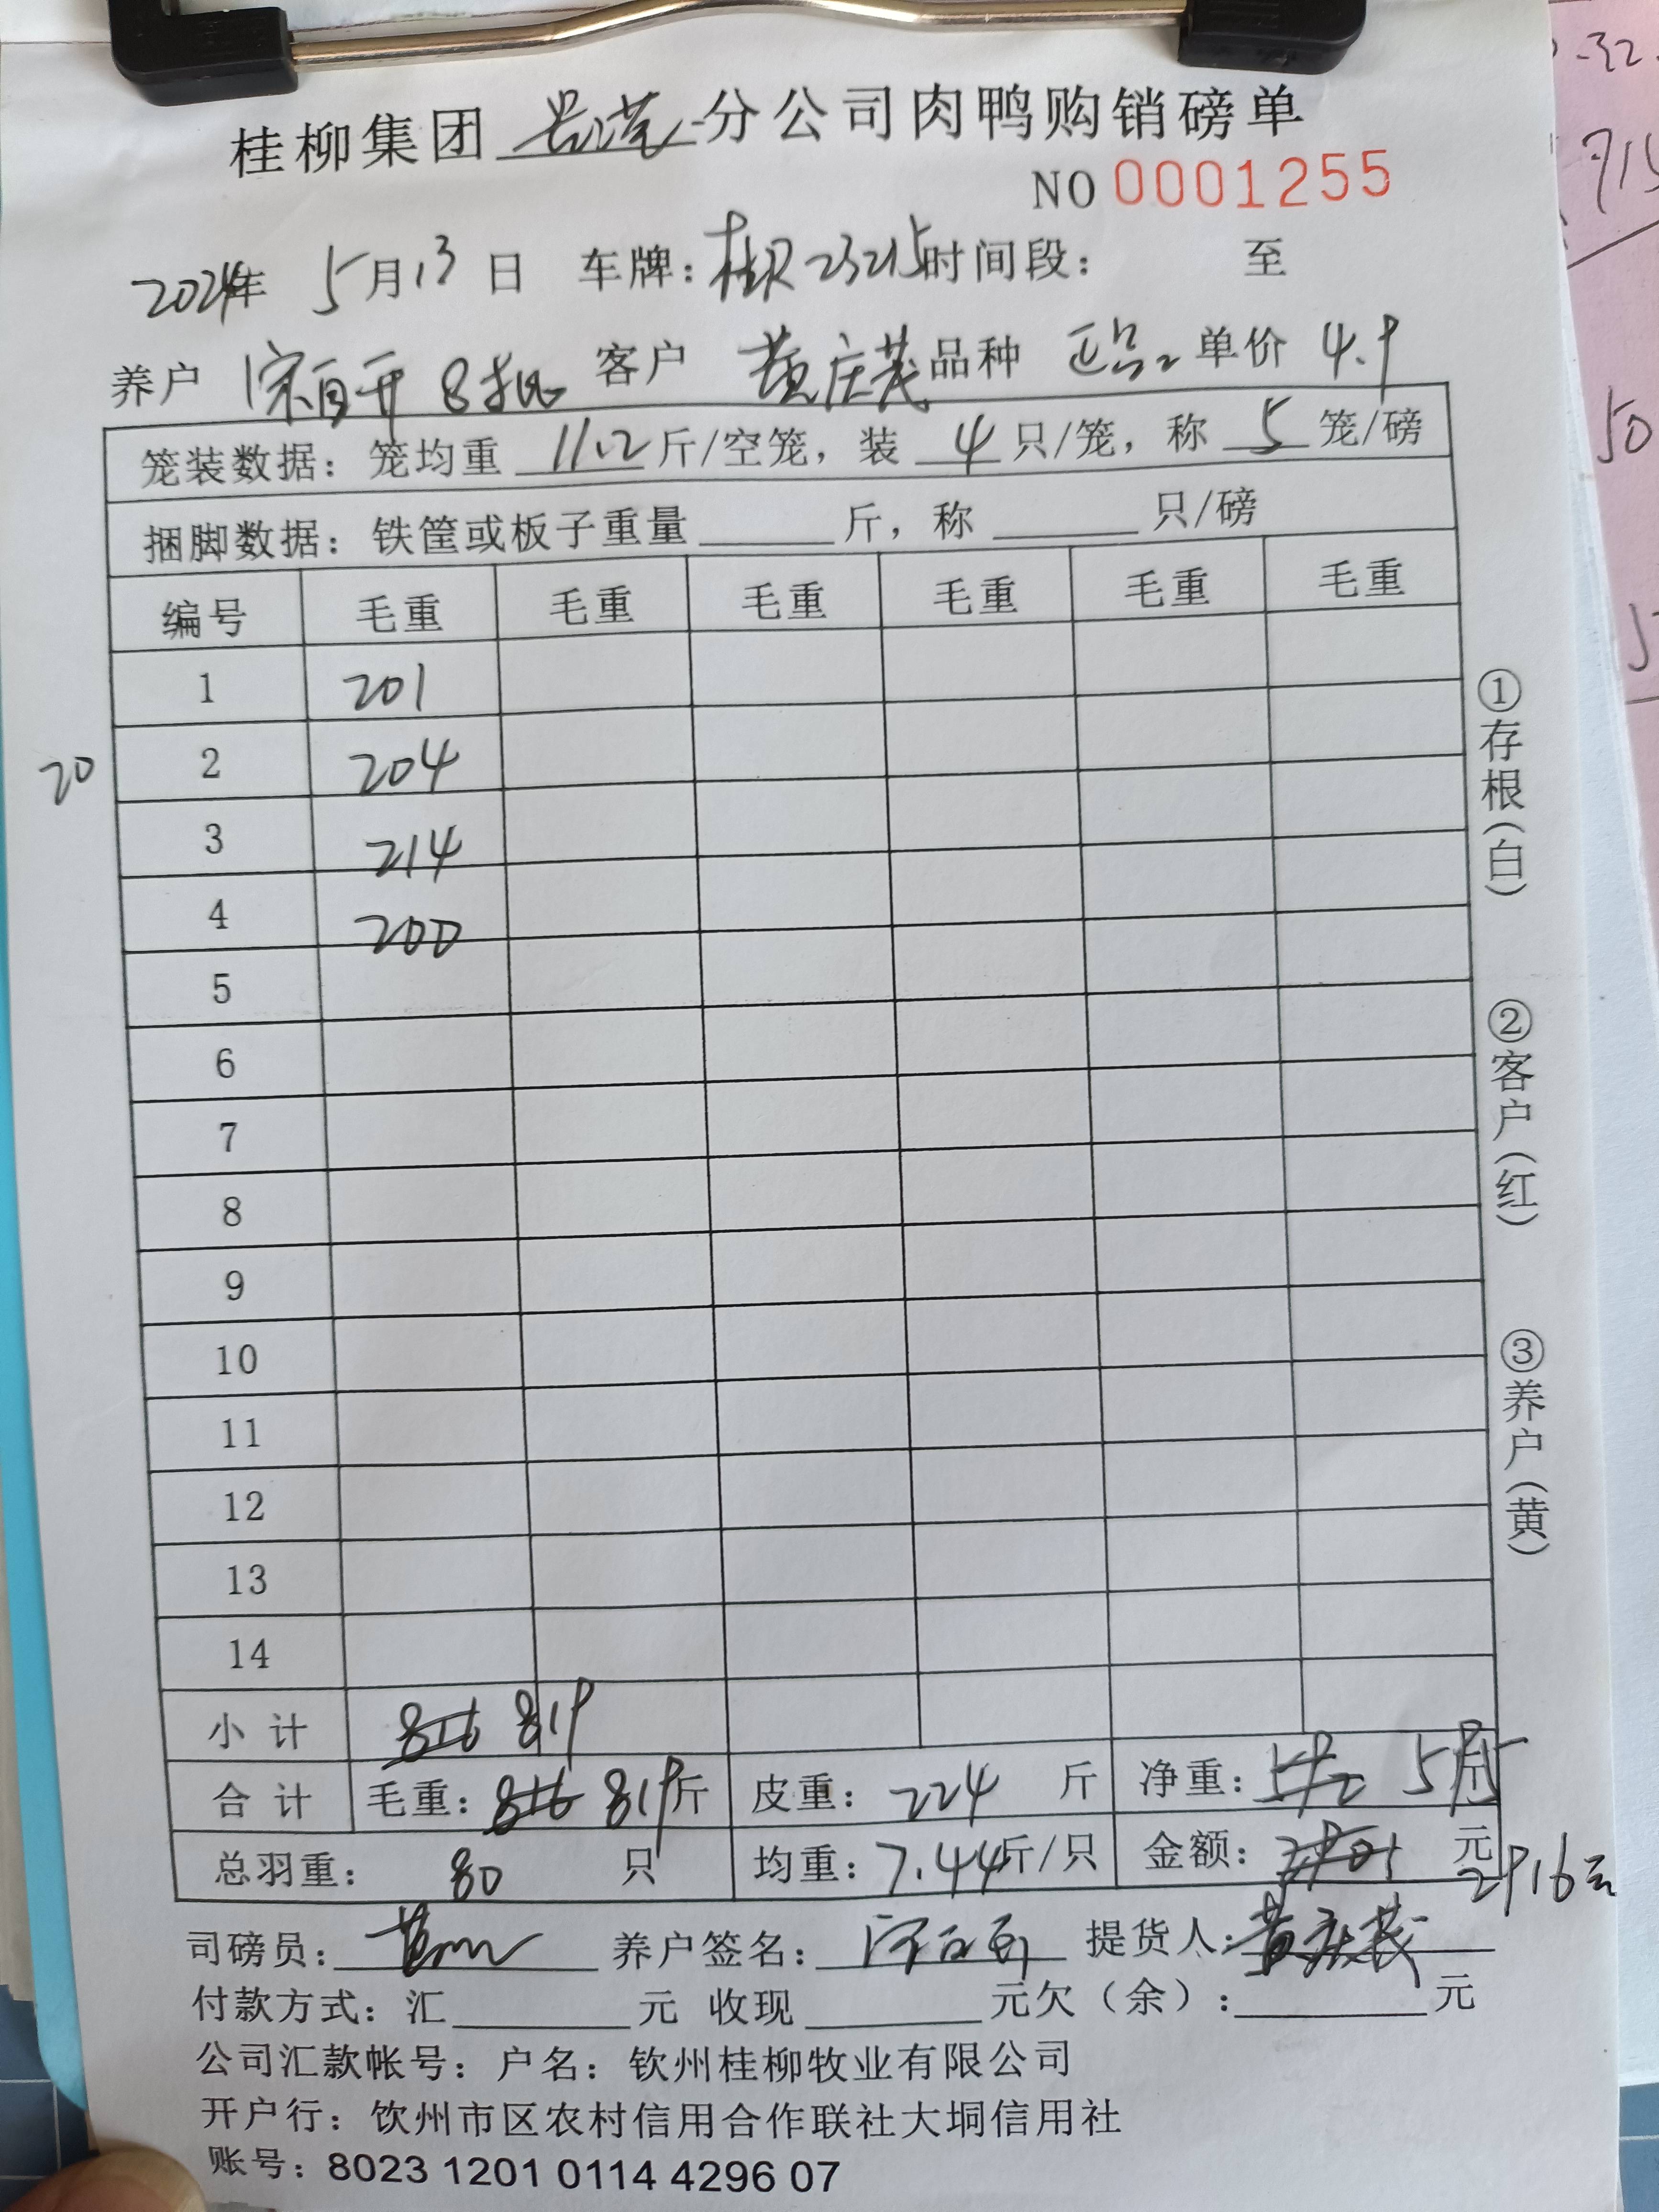 桂柳集团 分公司肉鸭购销磅单
NO 0001255
2024年 5月13日 车牌: 桂R23215 时间段: 至
养户 8批 客户 黄庆茂 品种 单价 4.9
笼装数据: 笼均重 11.2 斤/空笼, 装 4 只/笼, 称 5 笼/磅
捆脚数据: 铁筐或板子重量 斤, 称 只/磅
编号 毛重 毛重 毛重 毛重 毛重 毛重
1 201
20 2 204
3 214
4 200
5
6
7
8
9
10
11
12
13
14
小计 816 819
合计 毛重: 816 819斤 皮重: 224 斤 净重: 592 595斤
总羽重: 80 只 均重: 7.44斤/只 金额: 2901 元
2916元
司磅员: 养户签名: 提货人: 黄庆茂
付款方式: 汇 元 收现 元欠(余): 元
公司汇款帐号: 户名: 钦州桂柳牧业有限公司
开户行: 钦州市区农村信用合作联社大垌信用社
账号: 8023 1201 0114 4296 07
①存根(白)
②客户(红)
③养户(黄)
50